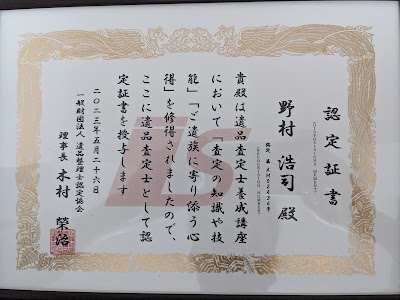 認定証書
野村 浩司 殿
貴殿は遺品査定士養成講座
において「査定の知識や技
能」「ご遺族に寄り添う心
得」を修得されましたので、
ここに遺品査定士として認
定証書を授与します
二〇二三年五月二十六日
一般財団法人 遺品整理士認定協会
理事長 木村 榮治